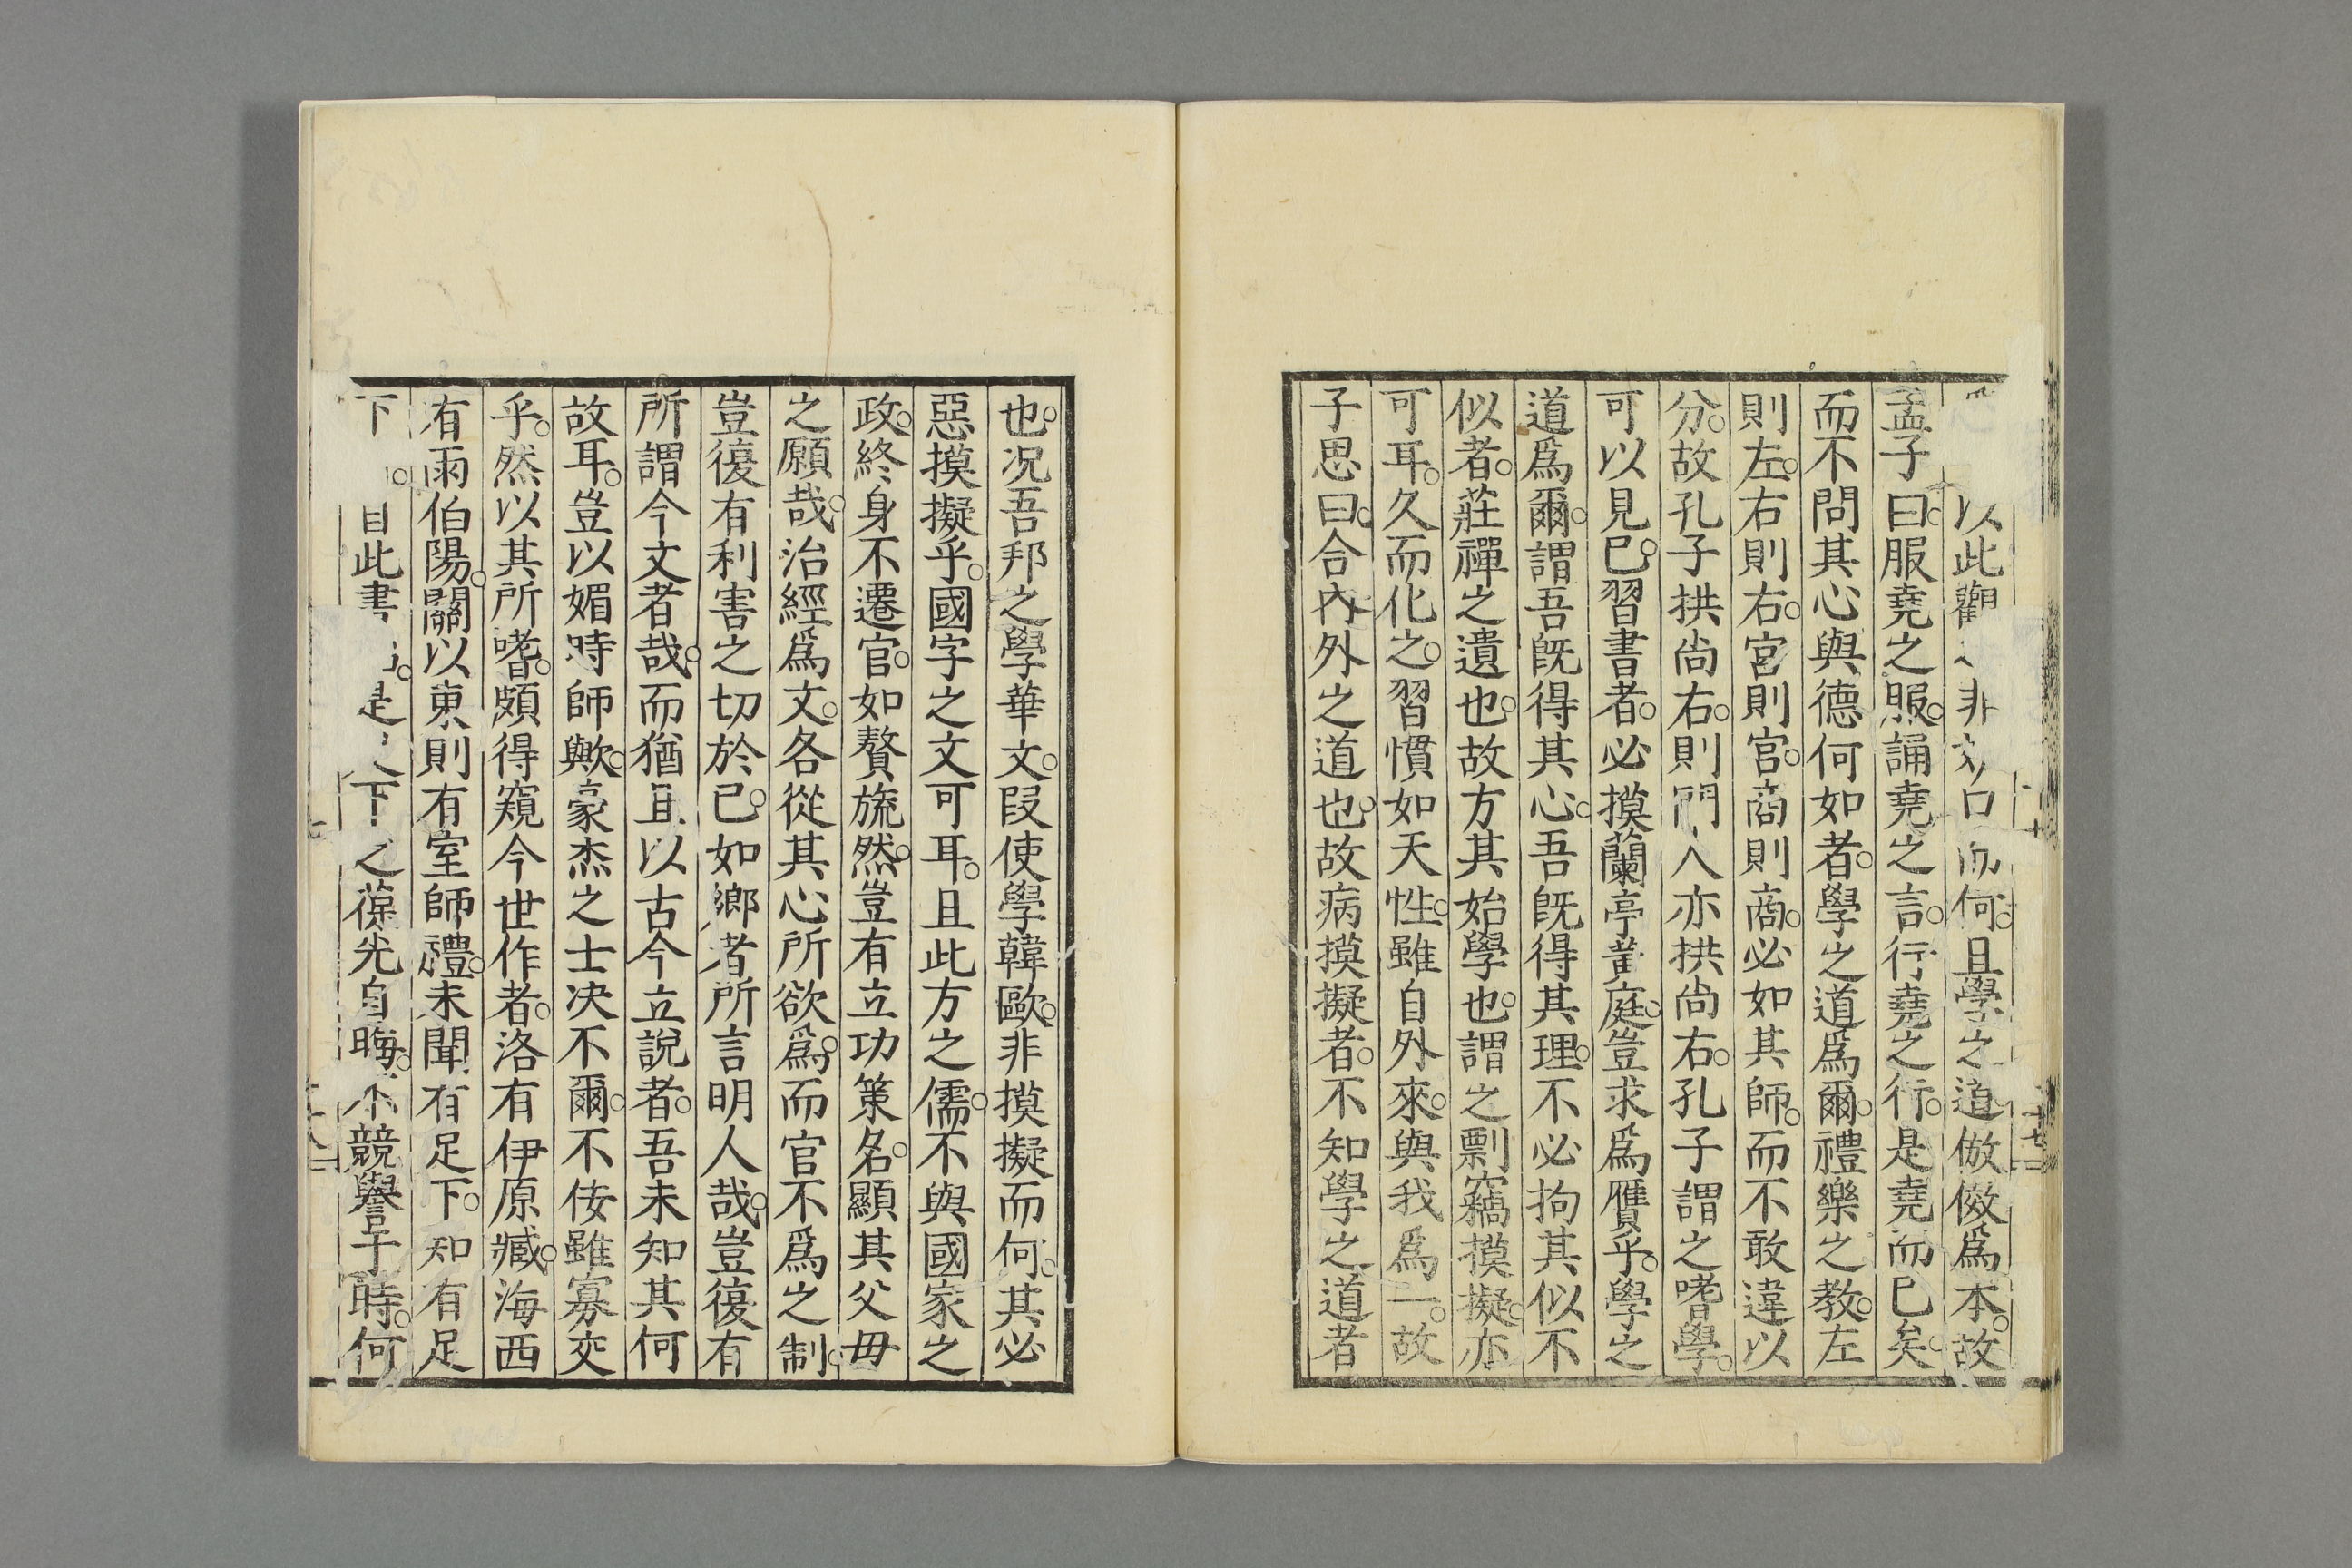 以此觀 非 而何。且學之道。倣傚爲本。故
孟子曰。服堯之服。誦堯之言。行堯之行。是堯而已矣。
而不問其心與德何如者。學之道爲爾。禮樂之教。左
則左。右則右。宮則宮。商則商。必如其師。而不敢違以
分。故孔子拱尚右。則門人亦拱尚右。孔子謂之嗜學。
可以見已。習書者。必摸蘭亭黃庭。豈求爲贋乎。學之
道爲爾。謂吾旣得其心。吾旣得其理。不必拘其似不
似者。莊禪之遺也。故方其始學也。謂之剽竊摸擬。亦
可耳。久而化之。習慣如天性。雖自外來。與我爲一。故
子思曰。合內外之道也。故病摸擬者。不知學之道者
也。况吾邦之學華文。叚使學韓歐。非摸擬而何。其必
惡摸擬乎。國字之文可耳。且此方之儒。不與國家之
政。終身不遷官。如贅旒然。豈有立功策名。顯其父毋
之願哉。治經爲文。各從其心所欲爲。而官不爲之制。
豈復有利害之切於已。如鄉者所言明人哉。豈復有
所謂今文者哉。而猶且以古今立說者。吾未知其何
故耳。豈以媚時師歟。豪杰之士决不爾。不佞雖寡交
乎。然以其所嗜。頗得窺今世作者。洛有伊原臧。海西
有雨伯陽。關以東則有室師禮。未聞有足下。知有足
下 。自此書 。是 下之葆光自晦。不競譽于時。何